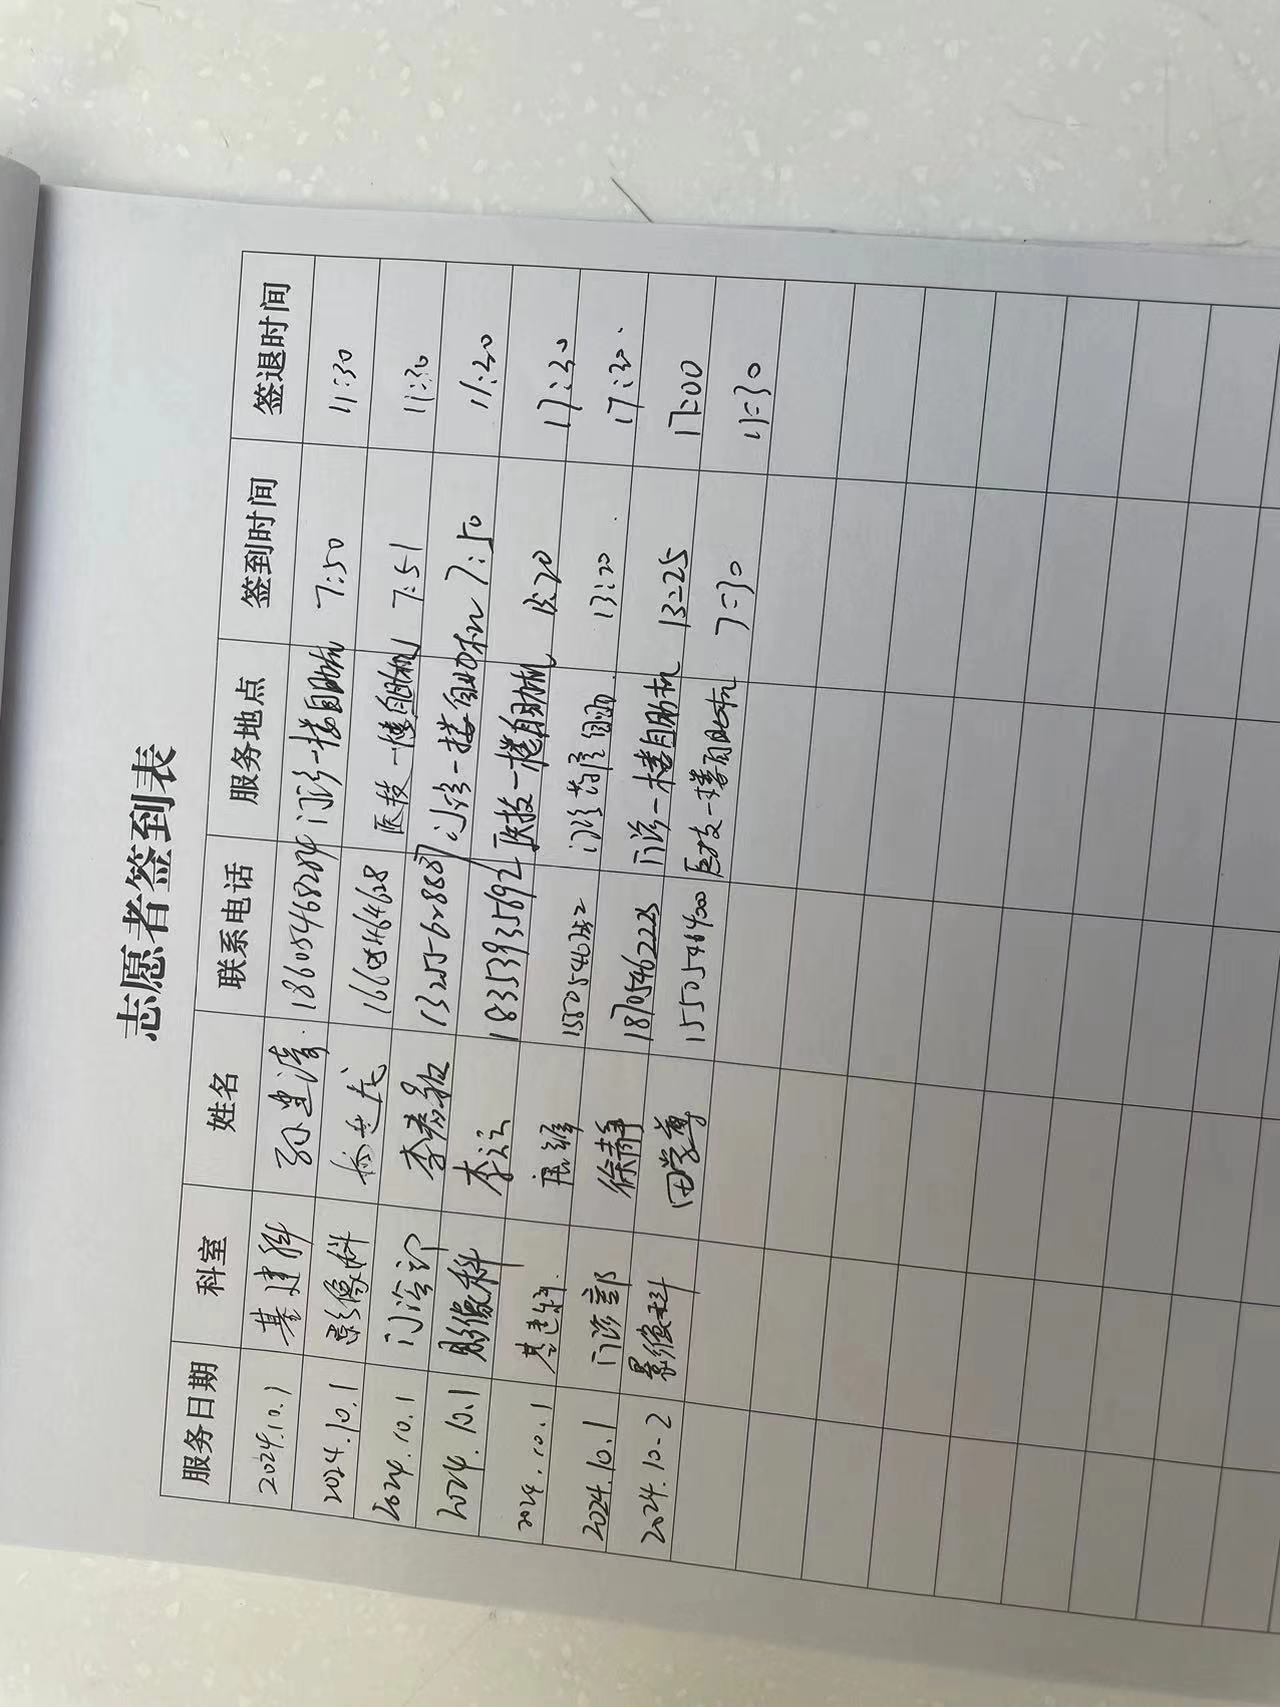 志愿者签到表
服务日期 科室 姓名 联系电话 服务地点 签到时间 签退时间
2024.10.1 基建科 孙建涛 18605468284 门诊一楼自助机 7:50 11:30
2024.10.1 影像科 医技一楼自助机 7:51 11:30
2024.10.1 门诊部 李秀敏 13255628887 门诊一楼自助机 7:50 11:30
2024.10.1 影像科 李云 18353935692 医技一楼自助机 13:20 17:30
2024.10.1 基建科 周维 15805463252 门诊药房自助 13:20 17:30
2024.10.1 门诊部 徐静 18705462225 门诊一楼自助机 13:25 17:00
2024.10.2 影像科 田学尊 15505469400 医技一楼自助机 7:30 11:30